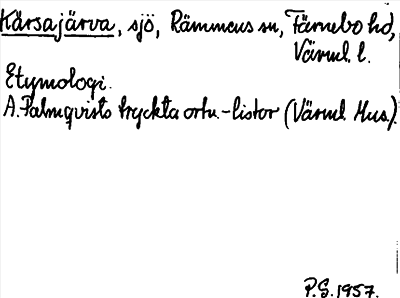 Kärsajärva, sjö, Rämmens sn, Färnebo hd,
Värml. l.
Etymologi.
A. Palmqvists tryckta ortn.-listor (Värml Mus.).
P.G. 1957.